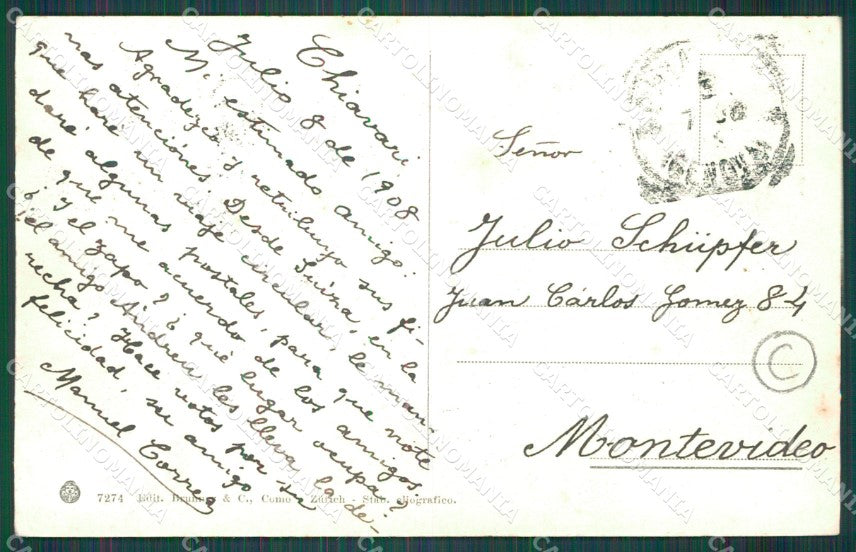 Chiavari
Julio 8 de 1908
Mi estimado amigo:
Agradezco y retribuyo sus fi-
nas atenciones. Desde Suiza, en la
que haré un viaje circular, le man-
daré algunas postales, para que note
de que me acuerdo de los amigos.
¿Y el zapo? ¿qué lugar ocupa?
¿el amigo Andreu les lleva la de-
recha? Hace votos por su
felicidad, su amigo
Manuel Correa
Señor
Julio Schüpfer
Juan Cárlos Gomez 84
Montevideo
C
7274 Edit. & C., Como - Zürich - Stab.
CARTOLINOMANIA